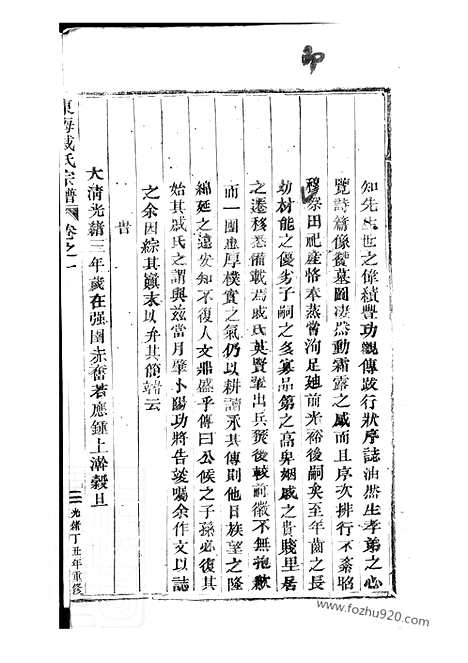 印
知先生世之偉績豐功觀傳跋行狀序誌油然生孝弟之心
覽詩篇像贊墓圖淒然動霜露之感而且序次排行不紊昭
穆祭田祀產恪奉蒸嘗洵足廸前光裕後嗣矣至年齒之長
幼材能之優劣子嗣之多寡品第之高卑姻戚之貴賤里居
之遷移悉備載焉戚氏英賢輩出兵燹後較前徽不無抱歉
而一團忠厚樸實之氣仍以耕讀永其傳則他日族望之隆
綿延之遠安知不復人文鼎盛乎傳曰公侯之子孫必復其
始其戚氏之謂與茲當月肇小陽功將告竣囑余作文以誌
之余因綜其巔末以弁其簡端云
旹
大清光緒三年歲在强圉赤奮若應鍾上澣穀旦
東海戚氏宗譜
卷之一
光緒丁丑年重修
www.fozhu920.com